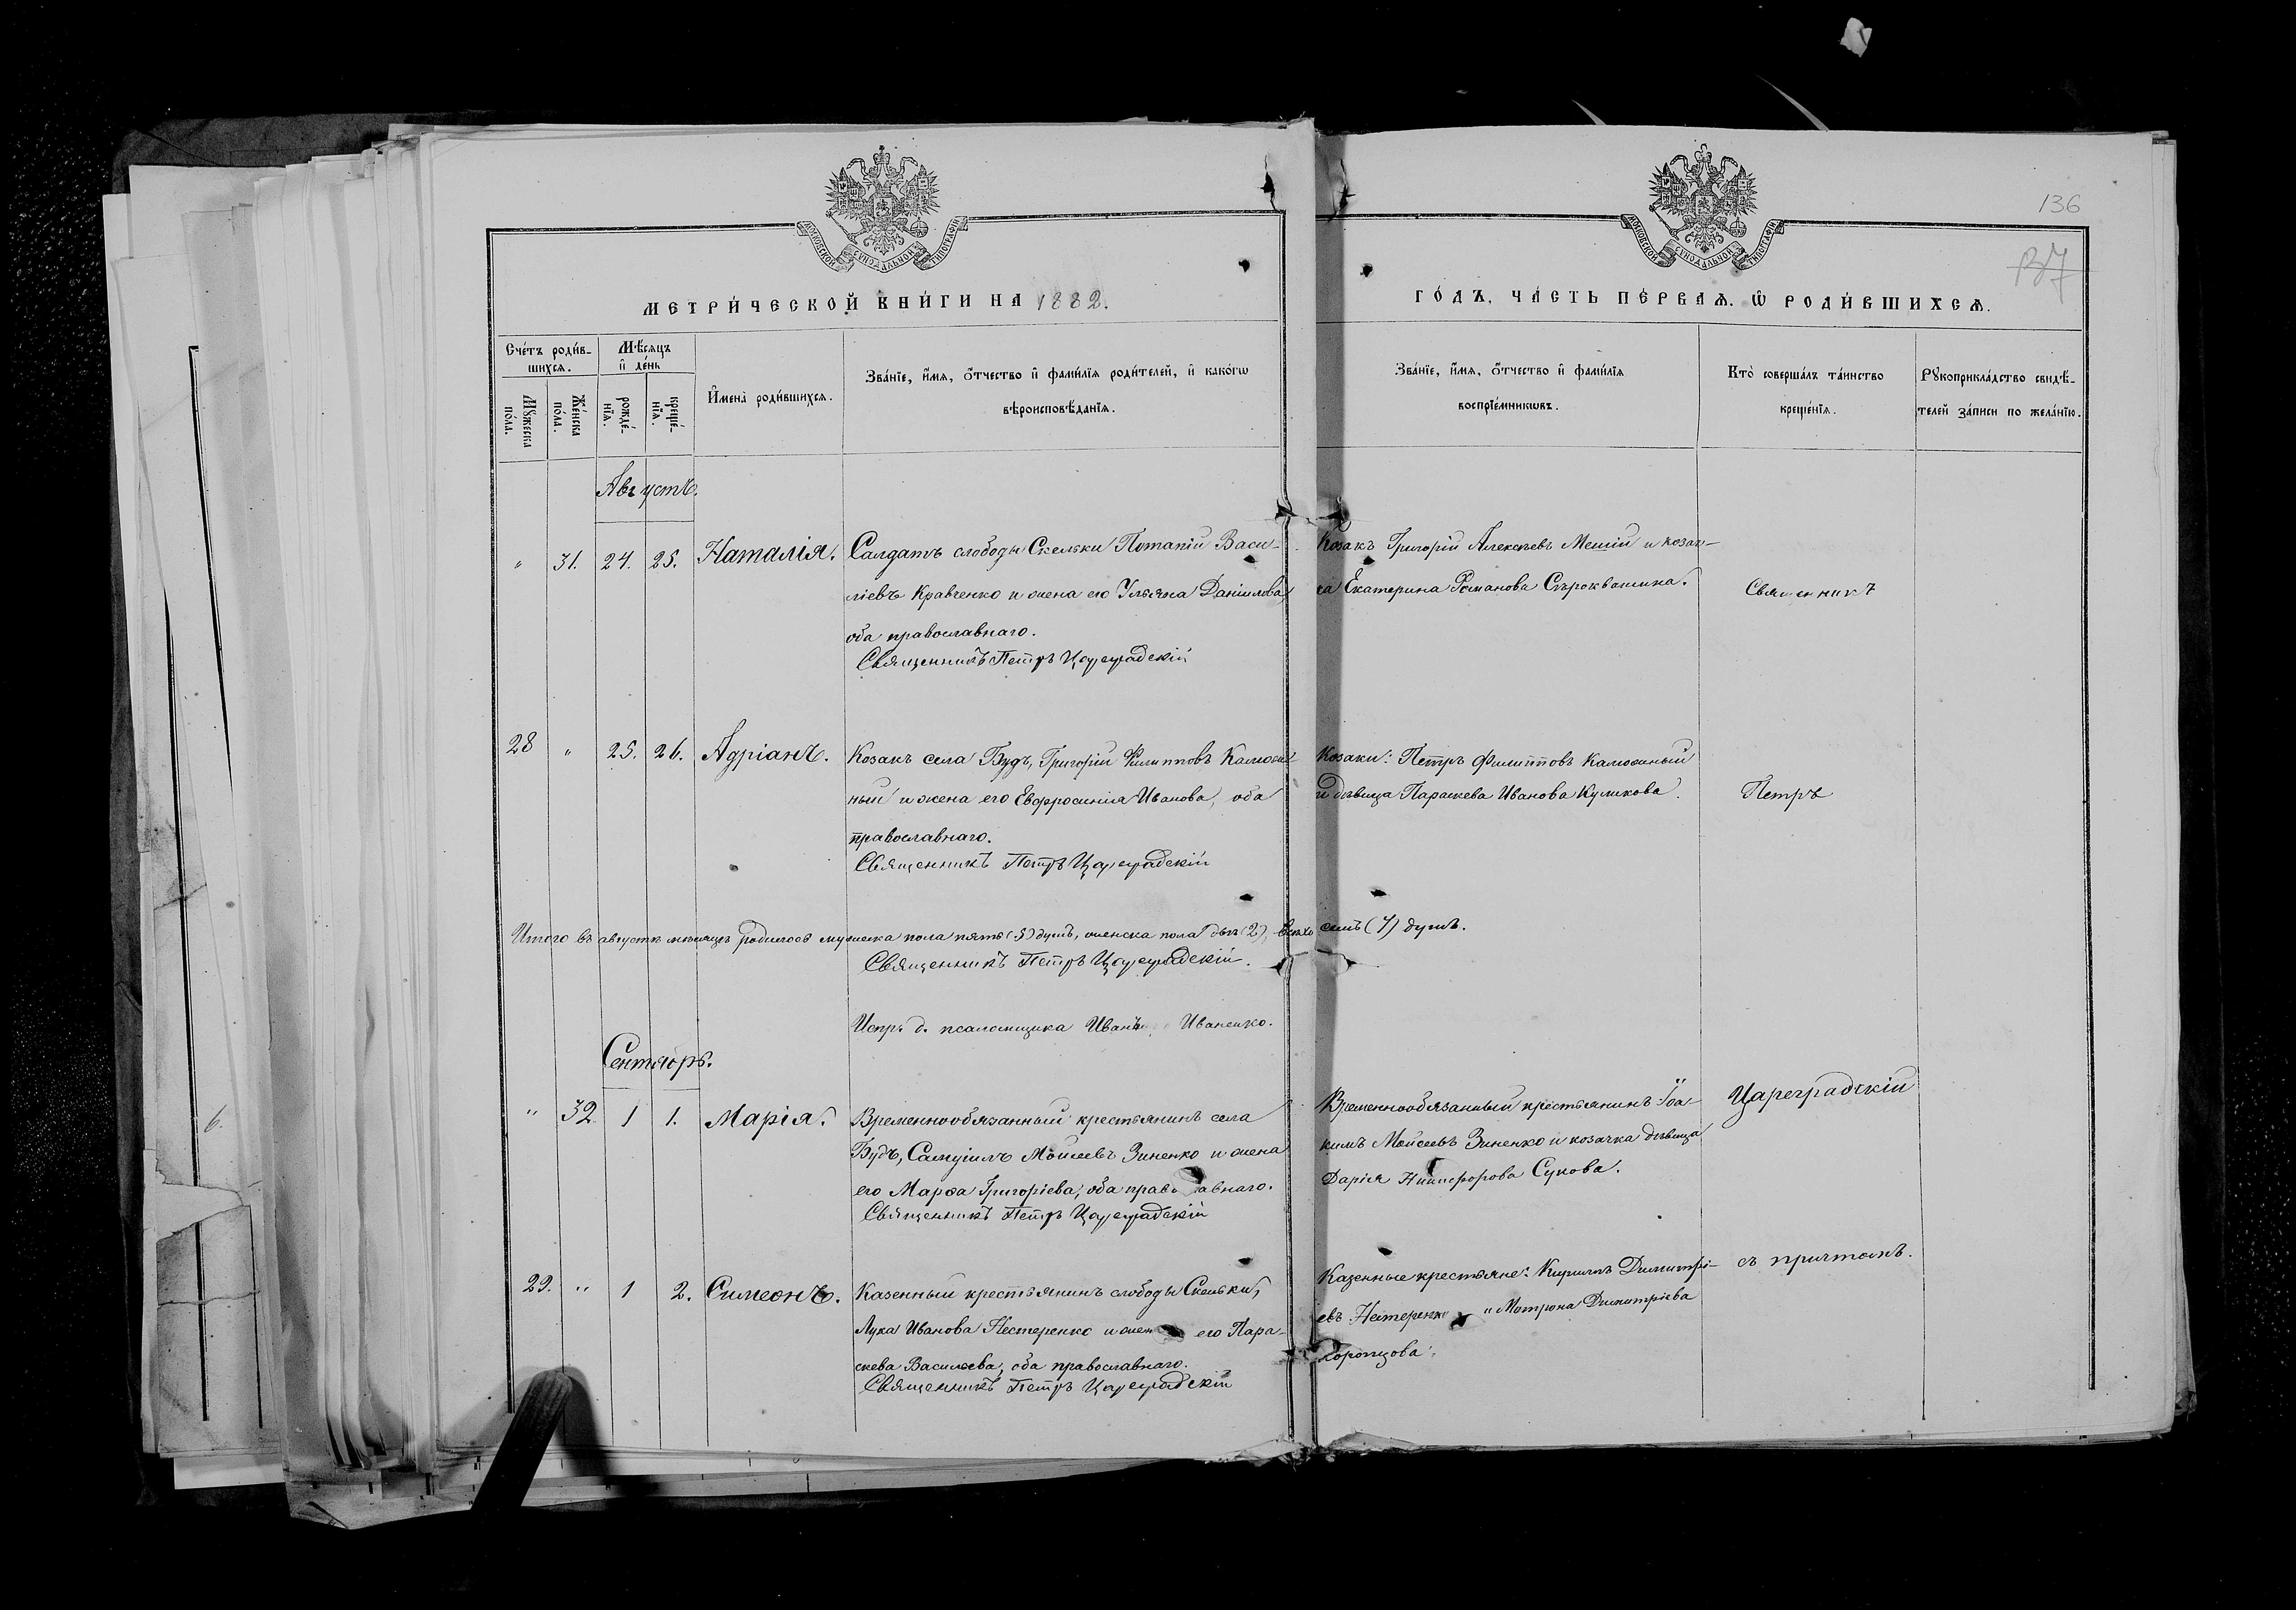 136
137
МЕТРИ́ЧЕСКОЙ КНИ́ГИ НА 1882.
ГО́ДЪ, ЧА́СТЬ ПЕ́РВАѦ. Ѡ҆ РОДИ́ВШИХСѦ.
Сче́тъ роди́в-
шихсѧ.
Мꙋ́жеска по́ла.
Же́нска по́ла.
Мѣ́сѧцъ
и҆ де́нь
рожде́-
нїѧ.
креще́-
нїѧ.
И҆мена̀ роди́вшихсѧ.
Зва́нїе, и҆́мѧ, ѻ҆́тчество и҆ фами́лїѧ роди́телей, и҆ како́гѡ
вѣроисповѣ́данїѧ.
Зва́нїе, и҆́мѧ, ѻ҆́тчество и҆ фами́лїѧ
воспрїе́мникѡвъ.
Кто̀ соверша́лъ та́инство
креще́нїѧ.
Рꙋкоприкла́дство свидѣ́-
телей за́писи по жела́нїю.
Августъ.
" 31. 24. 25. Наталія. Салдатъ слободы Скельки Потапій Васи-
ліевъ Кравченко и жена его Ульяна Даніилова,
оба православнаго.
Священникъ Петръ Цареградскій
Козакъ Григорій Алексѣевъ и козач-
ка Екатерина Романова Сыроквашина.
Священникъ
28 " 25. 26. Адріанъ. Козакъ села Будъ, Григорій Филипповъ Калюж-
ный и жена его Евфросинія Иванова, оба
православнаго.
Священникъ Петръ Цареградскій
Козаки: Петръ Филипповъ Калюжный
и дѣвица Параскева Иванова Куликова.
Петръ
Итого въ августѣ мѣсяцѣ родилось мужеска пола пять (5) душъ, женска пола двѣ (2), всѣхъ семь (7) душъ.
Священникъ Петръ Цареградскій.
Испр. д. псаломщика Иванъ Иваненко.
Сентябрь.
" 32 1 1. Марія. Временнообязанный крестьянинъ села
Будъ, Самуилъ Мойсеевъ Зиненко и жена
его Марѳа Григоріева, оба православнаго.
Священникъ Петръ Цареградскій
Временнообязанный крестьянинъ Іоа-
кимъ Мойсеевъ Зиненко и козачка дѣвица
Дарія Никифорова Сукова.
Цареградскій
29. " 1 2. Симеонъ. Казенный крестьянинъ слободы Скельки,
Лука Иванова Нестеренко и жена его Пара-
скева Василіева, оба православнаго.
Священникъ Петръ Цареградскій
Казенные крестьяне: Кириллъ Димитрі-
евъ Нестеренко и Матрона Димитріева
съ причтомъ.
6.